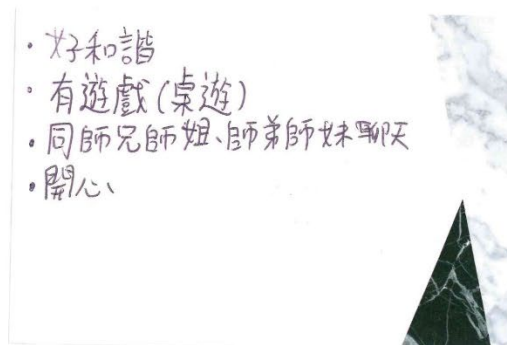 · 好和諧
· 有遊戲(桌遊)
· 同師兄師姐、師弟師妹聊天
· 開心